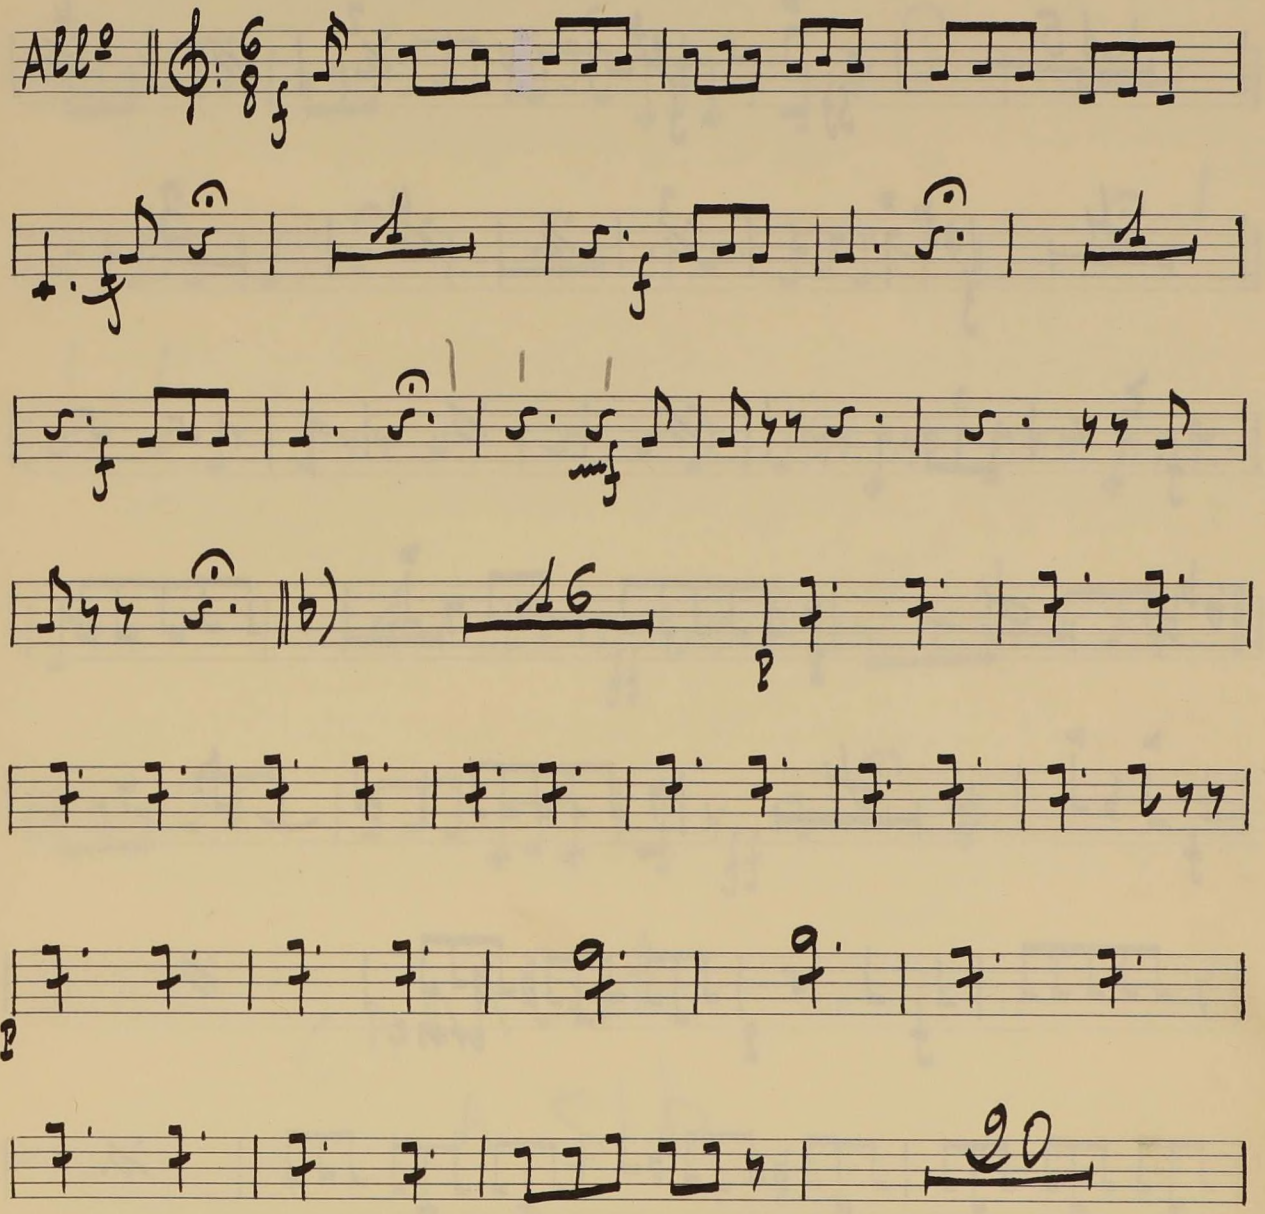 Allo 6 8 f
f 1 f 1
f mf
16 P
P
20